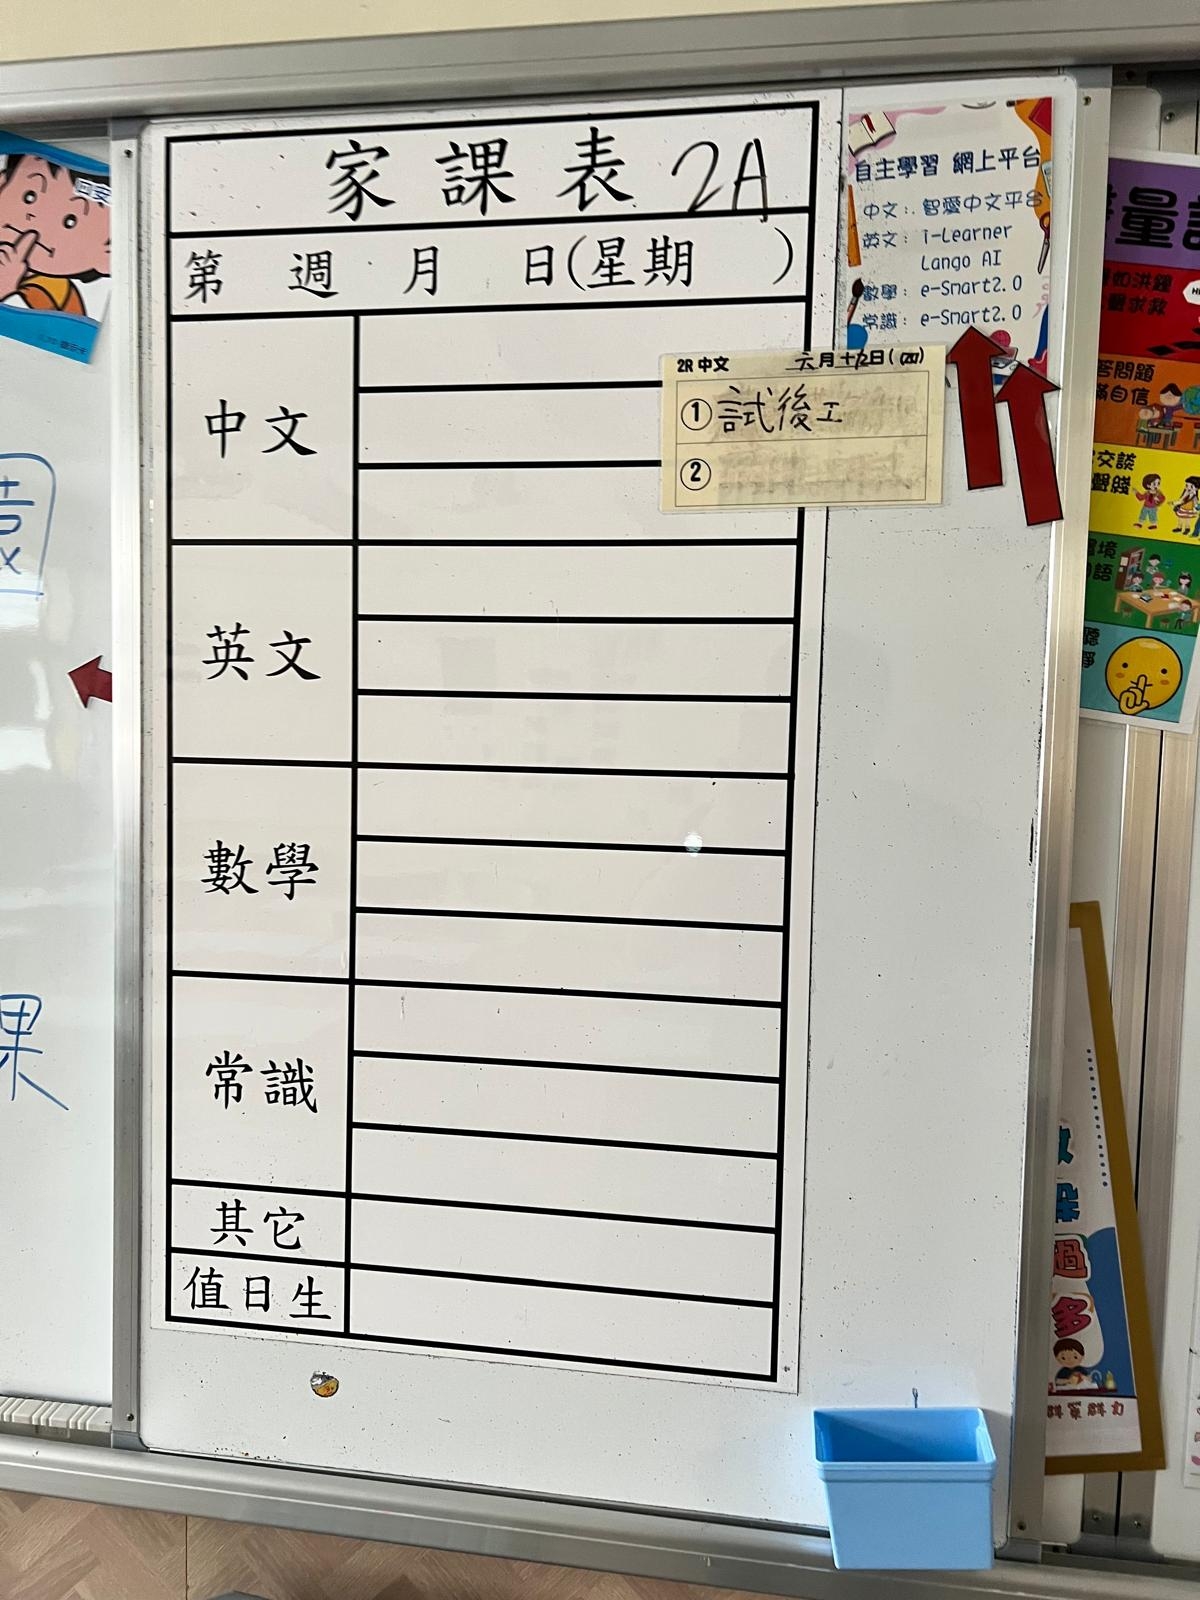 家課表 2A
第 週 月 日(星期 )
中文
英文
數學
常識
其它
值日生
2R 中文 六月十
①試後工
②
自主學習 網上平台
中文： 智愛中文平台
英文： i-Learner
Lango AI
數學： e-Smart2.0
常識： e-Smart2.0
量
如洪鐘
求救
答問題
滿自信
交談
聲綫
境
語
聽
靜
課
過
多
群策群力